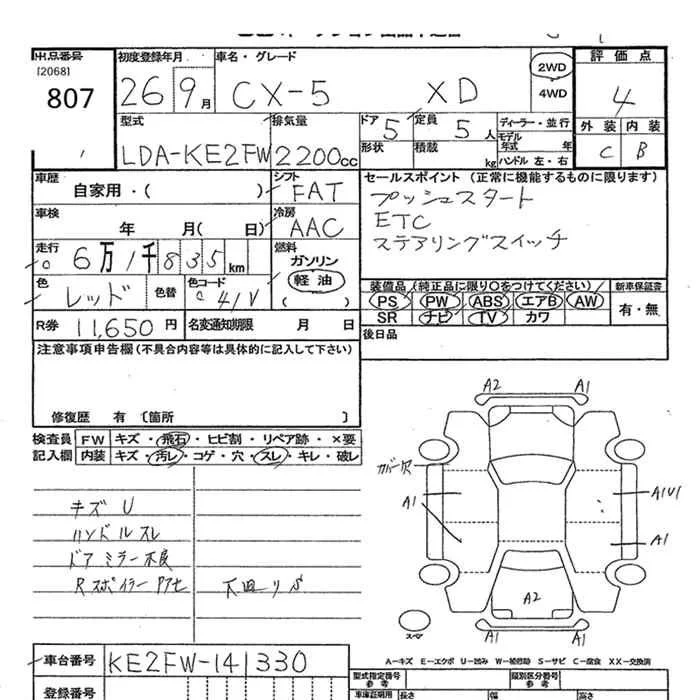 出品番号 初度登録年月 車名・グレード 2WD 評価点
[2068]
807 26 9月 CX-5 XD 4WD 4
型式 排気量 ドア 5 定員 5人 ディーラー・並行 外装 内装
LDA-KE2FW 2200cc 形状 積載 kg モデル年式 年 ハンドル 左・右 C B
車歴 自家用・( ) シフト FAT セールスポイント (正常に機能するものに限ります)
プッシュスタート
車検 年 月(日) 冷房 AAC ETC
ステアリングスイッチ
走行 6万1千835km 燃料 ガソリン
軽油
( )
色 レッド 色替 色コード 41V 装備品(純正品に限り○をつけてください) 新車保証書
PS PW ABS エアB AW 有・無
SR ナビ TV カワ
R券 11,650円 名変通知期限 月 日 後日品
注意事項申告欄(不具合内容等は具体的に記入して下さい)
修復歴 有 〔箇所 〕
検査員 FW キズ・飛石・ヒビ割・リペア跡・×要
記入欄 内装 キズ・汚レ・コゲ・穴・スレ・キレ・破レ
キズ U
ハンドルスレ
ドアミラー不良
RスポイラーPアセ 下廻りS
A2 A1
カバー欠
A1 A1U1
A1
A2
スペア
A1 A1
A-キズ E-エクボ U-凹み W-補修跡 S-サビ C-腐食 XX-交換済
車台番号 KE2FW-141330 型式指定番号 参考 類別区分番号 参考
登録番号 車庫証明用 長さ 幅 高さ